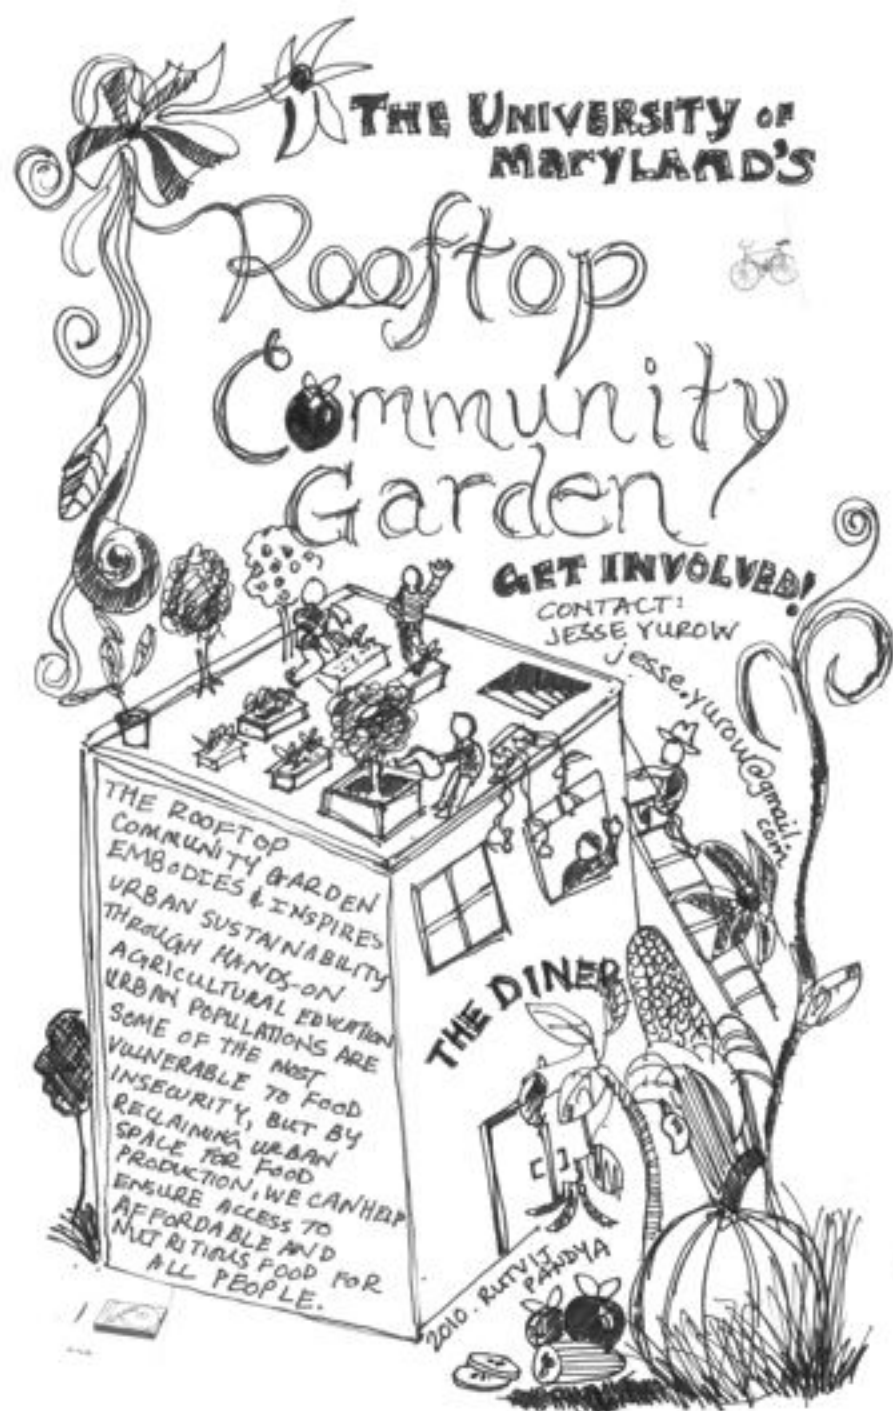 THE UNIVERSITY OF
MARYLAND'S
Rooftop
Community
Garden
GET INVOLVED!
CONTACT:
JESSE YUROW
jesse.yurow@gmail.
com
THE ROOFTOP
COMMUNITY GARDEN
EMBODIES & INSPIRES
URBAN SUSTAINABILITY
THROUGH HANDS-ON
AGRICULTURAL EDUCATION
URBAN POPULATIONS ARE
SOME OF THE MOST
VULNERABLE TO FOOD
INSECURITY, BUT BY
RECLAIMING URBAN
SPACE FOR FOOD
PRODUCTION, WE CAN HELP
ENSURE ACCESS TO
AFFORDABLE AND
NUTRITIOUS FOOD FOR
ALL PEOPLE.
THE DINER
2010. RUTVIJ
PANDYA